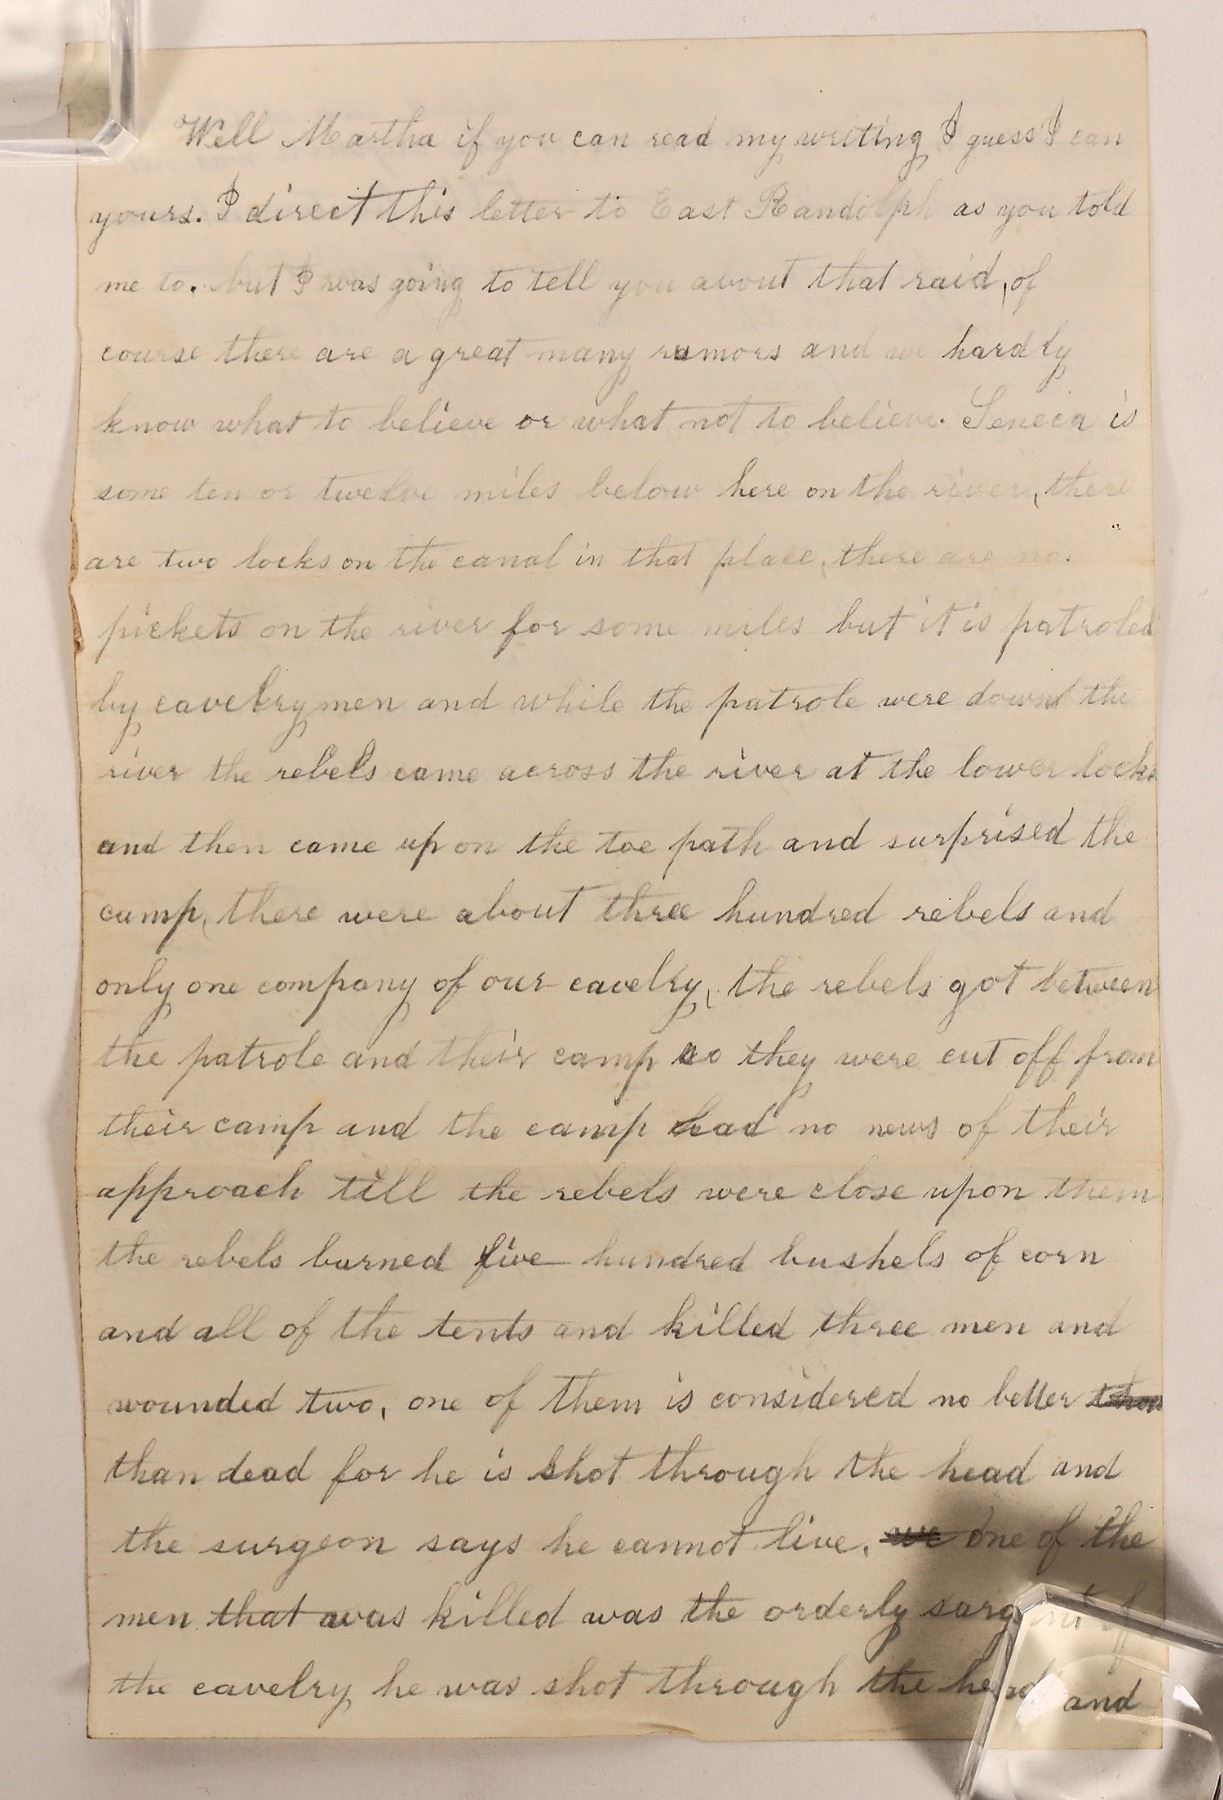 Well Martha if you can read my writing I guess I can
yours. I direct this letter to East Randolph as you told
me to. but I was going to tell you about that raid, of
course there are a great many rumors and we hardly
know what to believe or what not to believe. Seneca is
some ten or twelve miles below here on the river, there
are two locks on the canal in that place, there are no
pickets on the river for some miles but it is patroled
by cavelry men and while the patrole were down the
river the rebels came across the river at the lower locks
and then came up on the toe path and surprised the
camp, there were about three hundred rebels and
only one company of our cavelry, the rebels got between
the patrole and their camp so they were cut off from
their camp and the camp had no news of their
approach till the rebels were close upon them
the rebels burned five hundred bushels of corn
and all of the tents and killed three men and
wounded two, one of them is considered no better than
than dead for he is shot through the head and
the surgeon says he cannot live. we one of the
men that was killed was the orderly sargent of
the cavelry he was shot through the head and